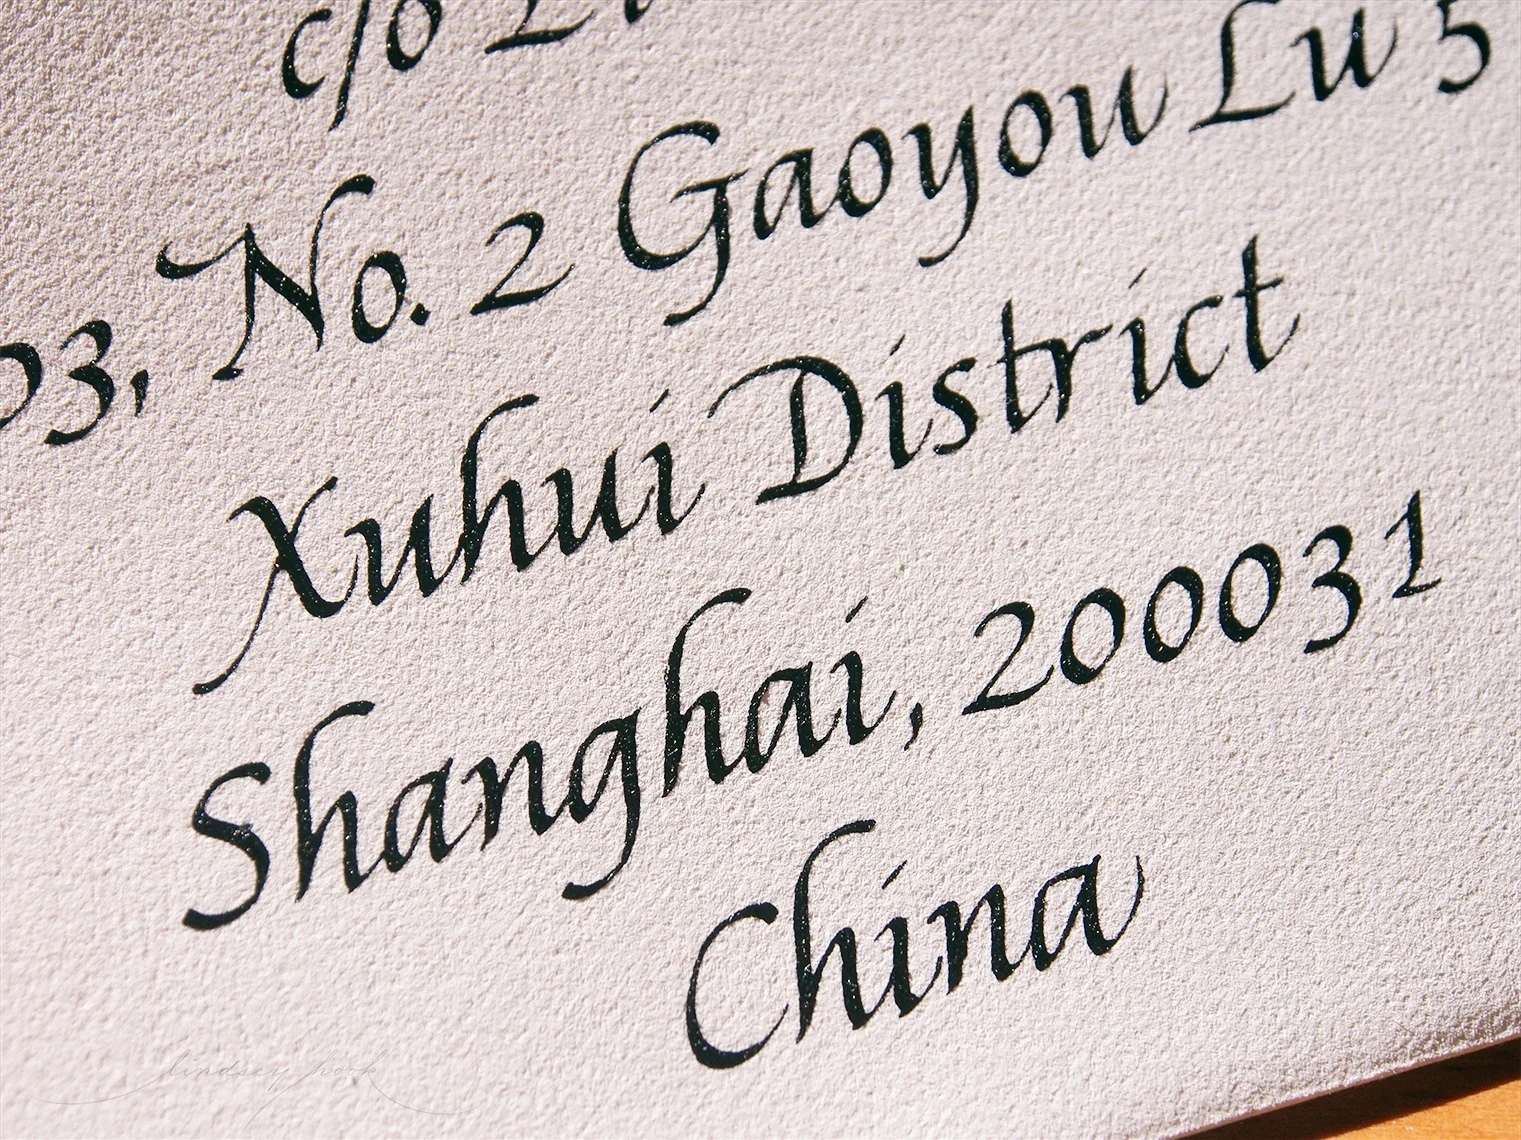 c/o
03, No. 2 Gaoyou Lu 5
Xuhui District
Shanghai, 200031
China
lindsey hook